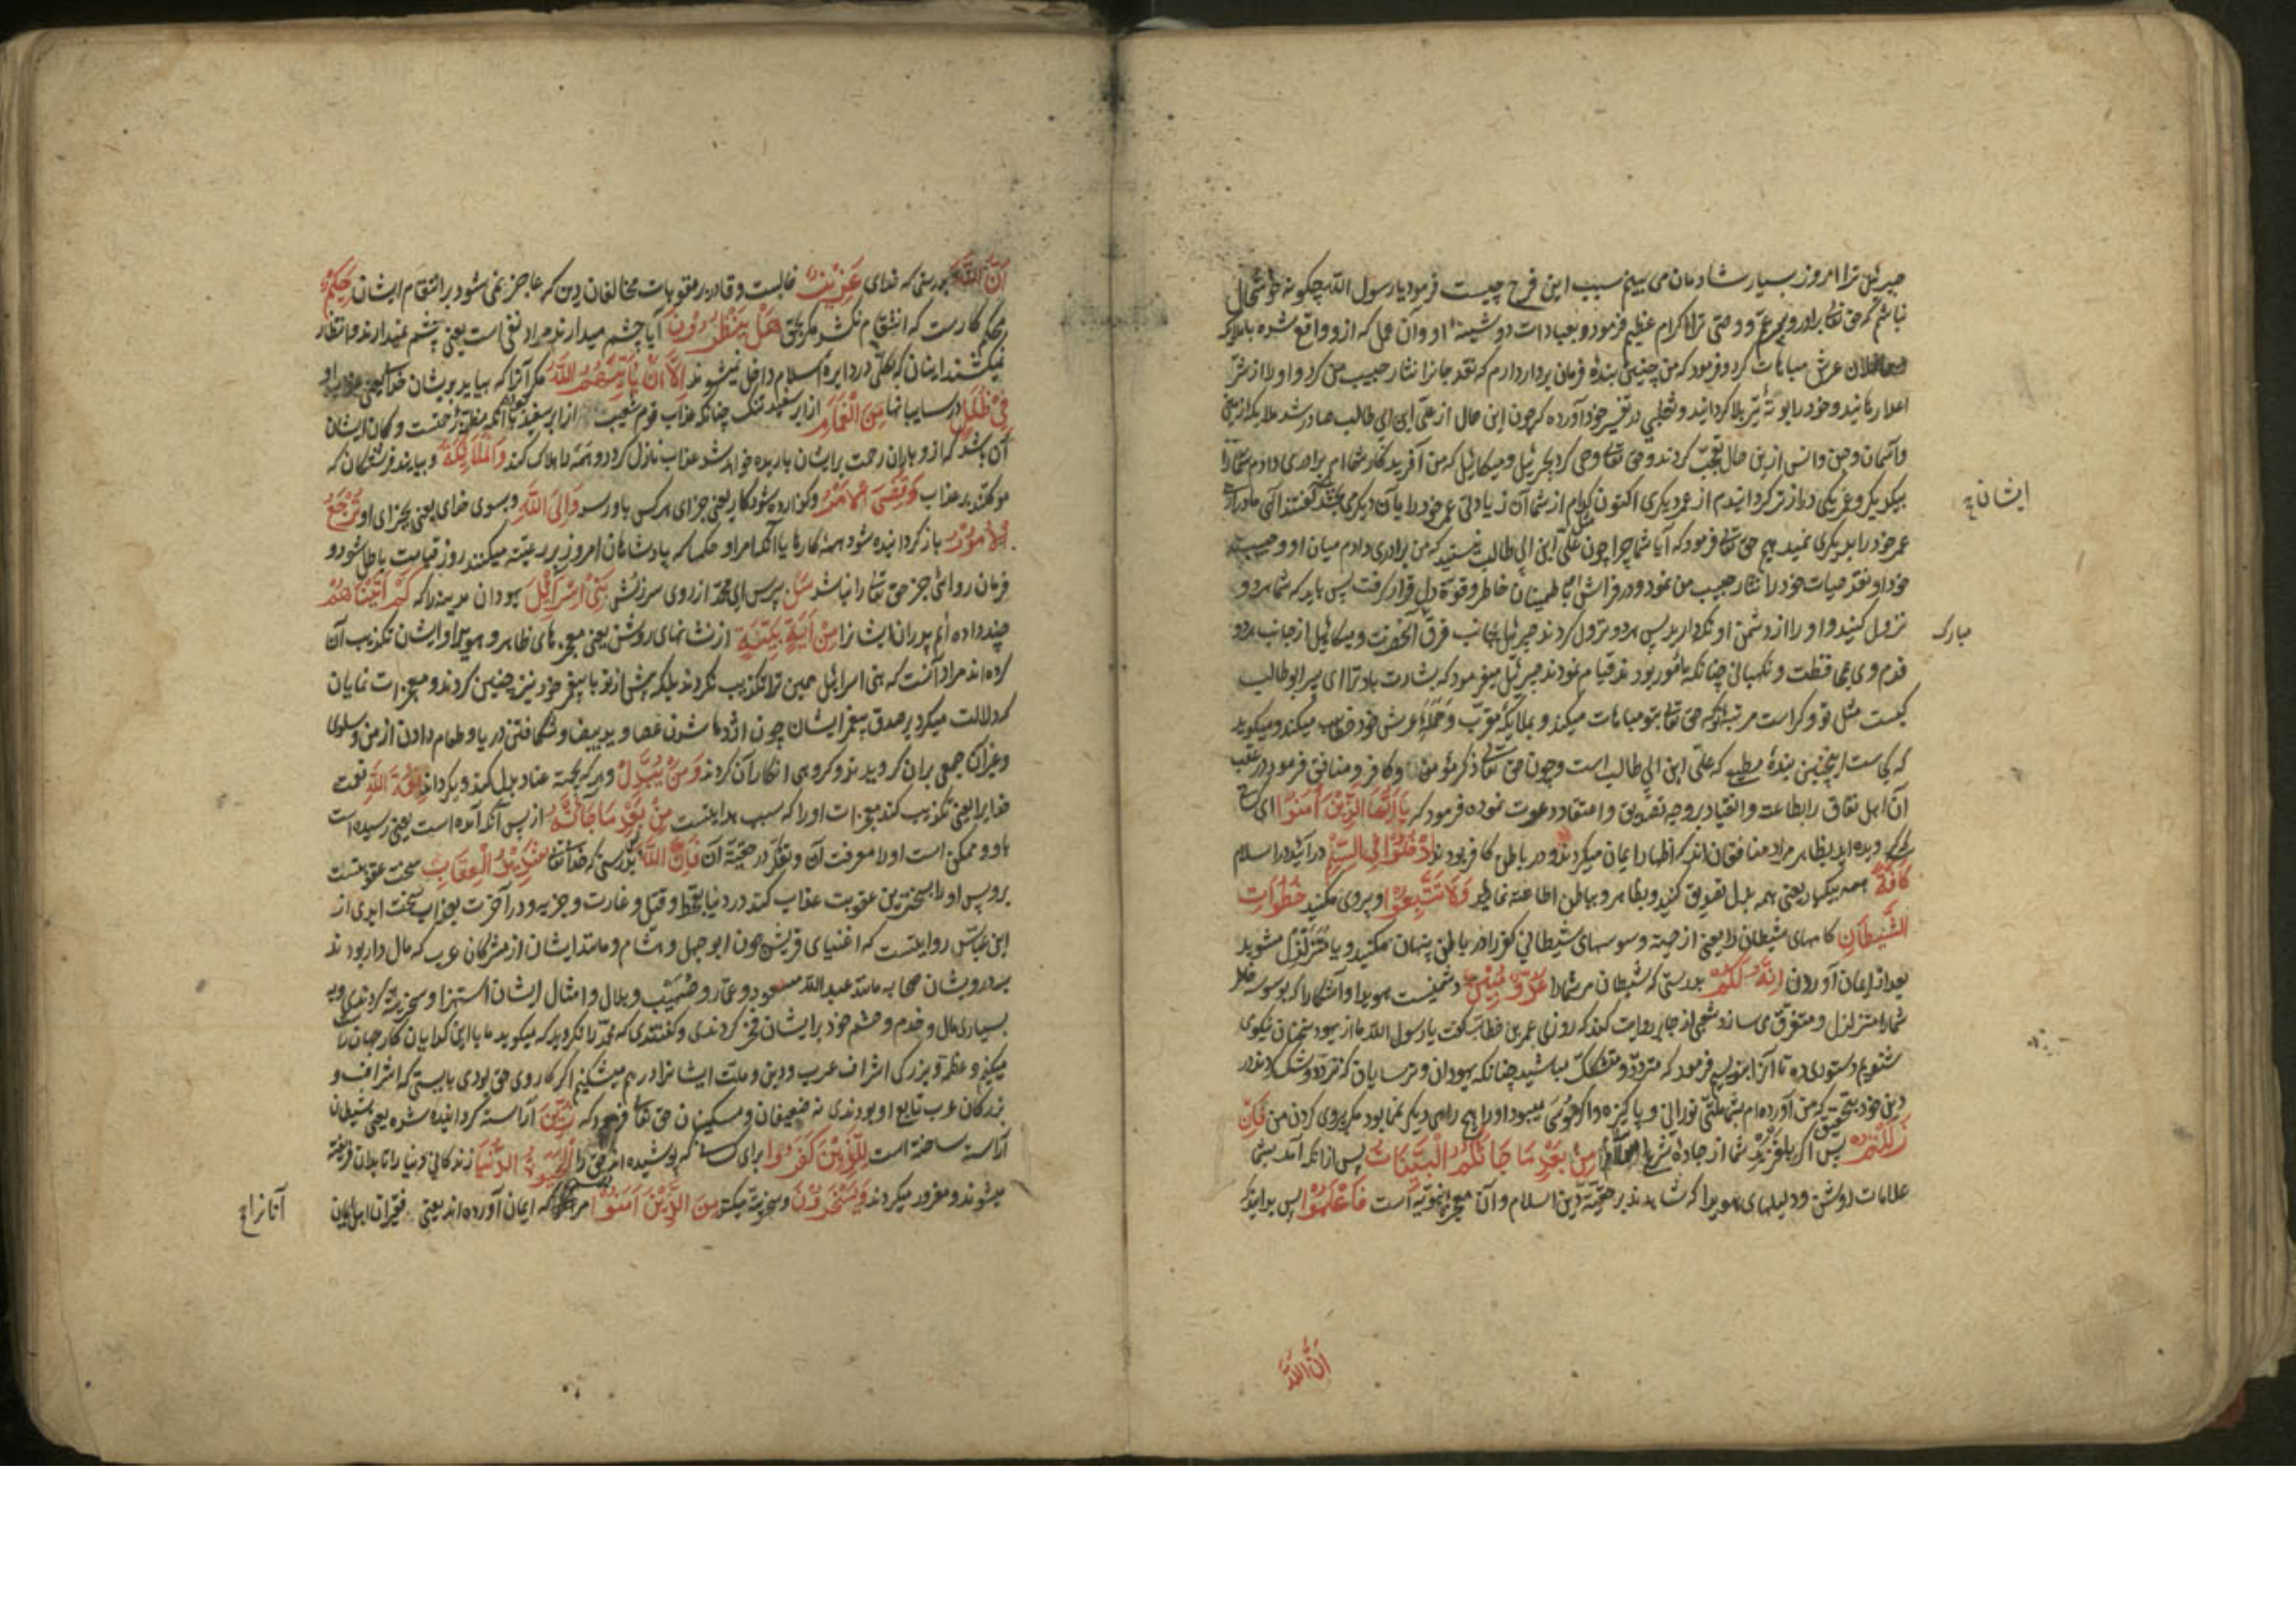 جبرئیل ترا امروز بسیار شادمان می بینم سبب این فرح چیست فرمود یا رسول الله چکونه خوشحال
نباشم که حق تعالی برادر و پسر عم و وصی ترا اکرام عظیم فرمود و بعبادات دوشینه او و آن عمل که ازو واقع شده با ملائکه
و حاملان عرش مباهات کرد و فرمود که من چنین بندهٔ فرمان بردار دارم که نقد جانرا نثار حبیب من کرد و او را از شر
اعدا رهانید و خود را بوته تیر بلا کردانید و ثعلبی در تفسیر خود آورده که چون این حال از علی ابن ابی طالب صادر شد ملائکه زمین
و آسمان و جن و انس ازین حال تعجب کردند و حق تعالی وحی کرد بجبرئیل و میکائیل که من آفریدکار شما ام برادری دادم شما را
بیکدیکر و عمر یکی درازتر کردانیدم از عمر دیکری اکنون کدام از شما آن زیادتی عمر خود را بآن دیکری بخشد گفتند الهی ما در
ایشان
عمر خود را بدیکری نمیدهیم حق تعالی فرمود که آیا شما چرا چون علی ابن ابی طالب نیستید که من برادری دادم میان او و حبیب
خود او نقد حیات خود را نثار حبیب من نمود و در فراش او باطمینان خاطر و قوة دل قرار کرفت پس باید که شما هر دو
نزول کنید و او را از دشمن او نکه دارید پس هر دو نزول کردند جبرئیل بجانب فرق آنحضرت و میکائیل از جانب هر دو
مبارک
قدم وی بمحافظت و نکهبانی چنانکه مامور بودند قیام نمودند جبرئیل میفرمود که بشارت باد ترا ای پسر ابو طالب
کیست مثل تو و کراست مرتبه تو که حق تعالی بتو مباهات میکند و بملائکه مقرب و حملهٔ عرش خود خطاب میکند و میکوید
که کجاست اینچنین بندهٔ مطیع که علی ابن ابی طالب است و چون حق تعالی ذکر مؤمن و کافر و منافق فرمود در عقب
آن اهل نفاق را بطاعت و انقیاد بر وجه تصدیق و اعتقاد دعوت نموده فرمود که یَا اَیُّهَا الَّذِیْنَ اٰمَنُوا ای
کرویده اید بظاهر مراد منافقان اند که اظهار ایمان میکردند و در باطن کافر بودند اُدْخُلُوْا فِی السِّلْمِ در آئید در اسلام
کَافَّةً همه بیکبار یعنی همه بدل تصدیق کنید و بظاهر و باطن اطاعت نمائید وَلَا تَتَّبِعُوْا و پیروی مکنید خُطُوَاتِ
الشَّیْطَانِ کامهای شیطان را یعنی از جهت وسوسهای شیطانی کفر را در باطن پنهان مکنید و یا متزلزل مشوید
بعد از ایمان آوردن اِنَّهُ لَکُمْ بدرستی که شیطان مر شما را عَدُوٌّ مُبِیْنٌ دشمنیست هویدا و آشکارا که بوسوسه
شما را متزلزل و متفرق می سازد شعبی از جابر روایت کند که روزی عمر بن خطاب گفت یا رسول الله ما از یهود سخنان نیکوی
شنویم دستوری ده تا آنرا بنویسیم فرمود که متردد و متشکک میباشید چنانکه یهودان و ترسایان که تردد و شک کردند در
دین خود بتحقیق که من آورده ام بشما ملتی نورانی و پاکیزه و اکر موسی میبود او را هیچ راهی دیکر نمی بود مکر پیروی کردن من فَاِنْ
زَلَلْتُمْ پس اکر بلغزید شما از جادهٔ شرع اسلام مِنْ بَعْدِ مَا جَائَتْکُمُ الْبَیِّنَاتُ پس از انکه آمد بشما
علامات روشن و دلیلهای هویدا که شاهدند بر حقیّة دین اسلام و آن معجزات نبویه است فَاعْلَمُوْا پس بدانید که
اَنَّ اللّٰهَ
اَنَّ اللّٰهَ بدرستی که خدای عَزِیْزٌ غالبست و قادر بر عقوبات مخالفان دین که عاجز نمی شود بر انتقام ایشان حَکِیْمٌ
محکم کارست که انتقام نکشد مکر بحق هَلْ یَنْظُرُوْنَ آیا چشم میدارند مراد نفی است یعنی چشم نمیدارند و انتظار
نمیکشند ایشان که بکلی در دایره اسلام داخل نمیشوند اِلَّا اَنْ یَأْتِیَهُمُ اللّٰهُ مکر آنرا که بیاید بریشان خدا یعنی عذاب او
فِیْ ظُلَلٍ در سایبانها مِنَ الْغَمَامِ از ابر سفید تنک چنانکه عذاب قوم شعیب از ابر سفید با آنکه مظنهٔ رحمت و کمان ایشان
آن باشد که ازو باران رحمت بر ایشان باریده خواهد شد عذاب نازل کردد و همه را هلاک کند وَالْمَلَائِکَةُ و بیایند فرشتکان که
موکلند بر عذاب وَقُضِیَ الْاَمْرُ و کزارده شود کار یعنی جزای هر کس باو رسد وَاِلَی اللّٰهِ و بسوی خدای یعنی بجزای او تُرْجَعُ
الْاُمُوْرُ باز کردانیده شود همهٔ کارها یا آنکه امر او حکمها که پادشاهان امروز بر رعیت میکنند روز قیامت باطل شود و
فرمان روائی جز حق تعالی را نباشد سَلْ پرس ای محمد از روی سرزنش بَنِیْ اِسْرَائِیْلَ یهودان مدینه را که کَمْ اٰتَیْنَاهُمْ
چند داده ایم پدران ایشانرا مِنْ اٰیَةٍ بَیِّنَةٍ از نشانهای روشن یعنی معجزه های ظاهر و هویدا و ایشان تکذیب آن
کرده اند مراد آنست که بنی اسرائیل همین ترا تکذیب نکردند بلکه پیش از تو با پیغمبر خود نیز چنین کردند و معجزات نمایان
که دلالت میکرد بر صدق پیغمبر ایشان چون اژدها شدن عصا و ید بیضا و شکافتن دریا و طعام دادن از من و سلوی
و غیر آن جمعی بران کرویدند و کروهی انکار آن کردند وَمَنْ یُبَدِّلْ و هر که بجهة عناد بدل کند و بکرداند نِعْمَةَ اللّٰهِ نعمت
خدایرا یعنی تکذیب کند معجزات او را که سبب هدایتست مِنْ بَعْدِ مَا جَائَتْهُ از پس آنکه آمده است یعنی رسیده است
باو و ممکن است او را معرفت آن و تفکر در حقیّة آن فَاِنَّ اللّٰهَ بدرستی که خدایتعالی شَدِیْدُ الْعِقَابِ سخت عقوبتست
بر وی پس او را بسخترین عقوبت عذاب کند در دنیا بقحط و قتل و غارت و جزیه و در آخرت بعذاب سخت ابدی از
ابن عباس روایتست که اغنیای قریش چون ابو جهل و هشام و مانند ایشان از مشرکان عرب که مال دار بودند
بدرویشان صحابه مانند عبد الله مسعود و عمار و صهیب و بلال و امثال ایشان استهزا و سخریة کردندی و به
بسیاری مال و خدم و حشم خود بر ایشان فخر کردندی و کفتندی که محمد را نکرید که میکوید ما باین کدایان کار جهان را
میکنیم و عظمة و بزرکی اشراف عرب و دین و ملت ایشانرا در هم میشکنیم اکر کار وی حق بودی بایستی که اشراف و
بزرکان عرب تابع او بودندی نه ضعیفان و مسکینان حق تعالی فرمود که زُیِّنَ آراسته کردانیده شده یعنی شیطان
آراسته ساخته است لِلَّذِیْنَ کَفَرُوا برای کسانی که پوشیده اند حق را الْحَیٰوةُ الدُّنْیَا زندکانی دنیا را تا بدان فریفته
میشوند و مغرور میکردند وَیَسْخَرُوْنَ و سخریت میکنند مِنَ الَّذِیْنَ اٰمَنُوْا از آنها که ایمان آورده اند یعنی فقیران اهل ایمان
آنانرا